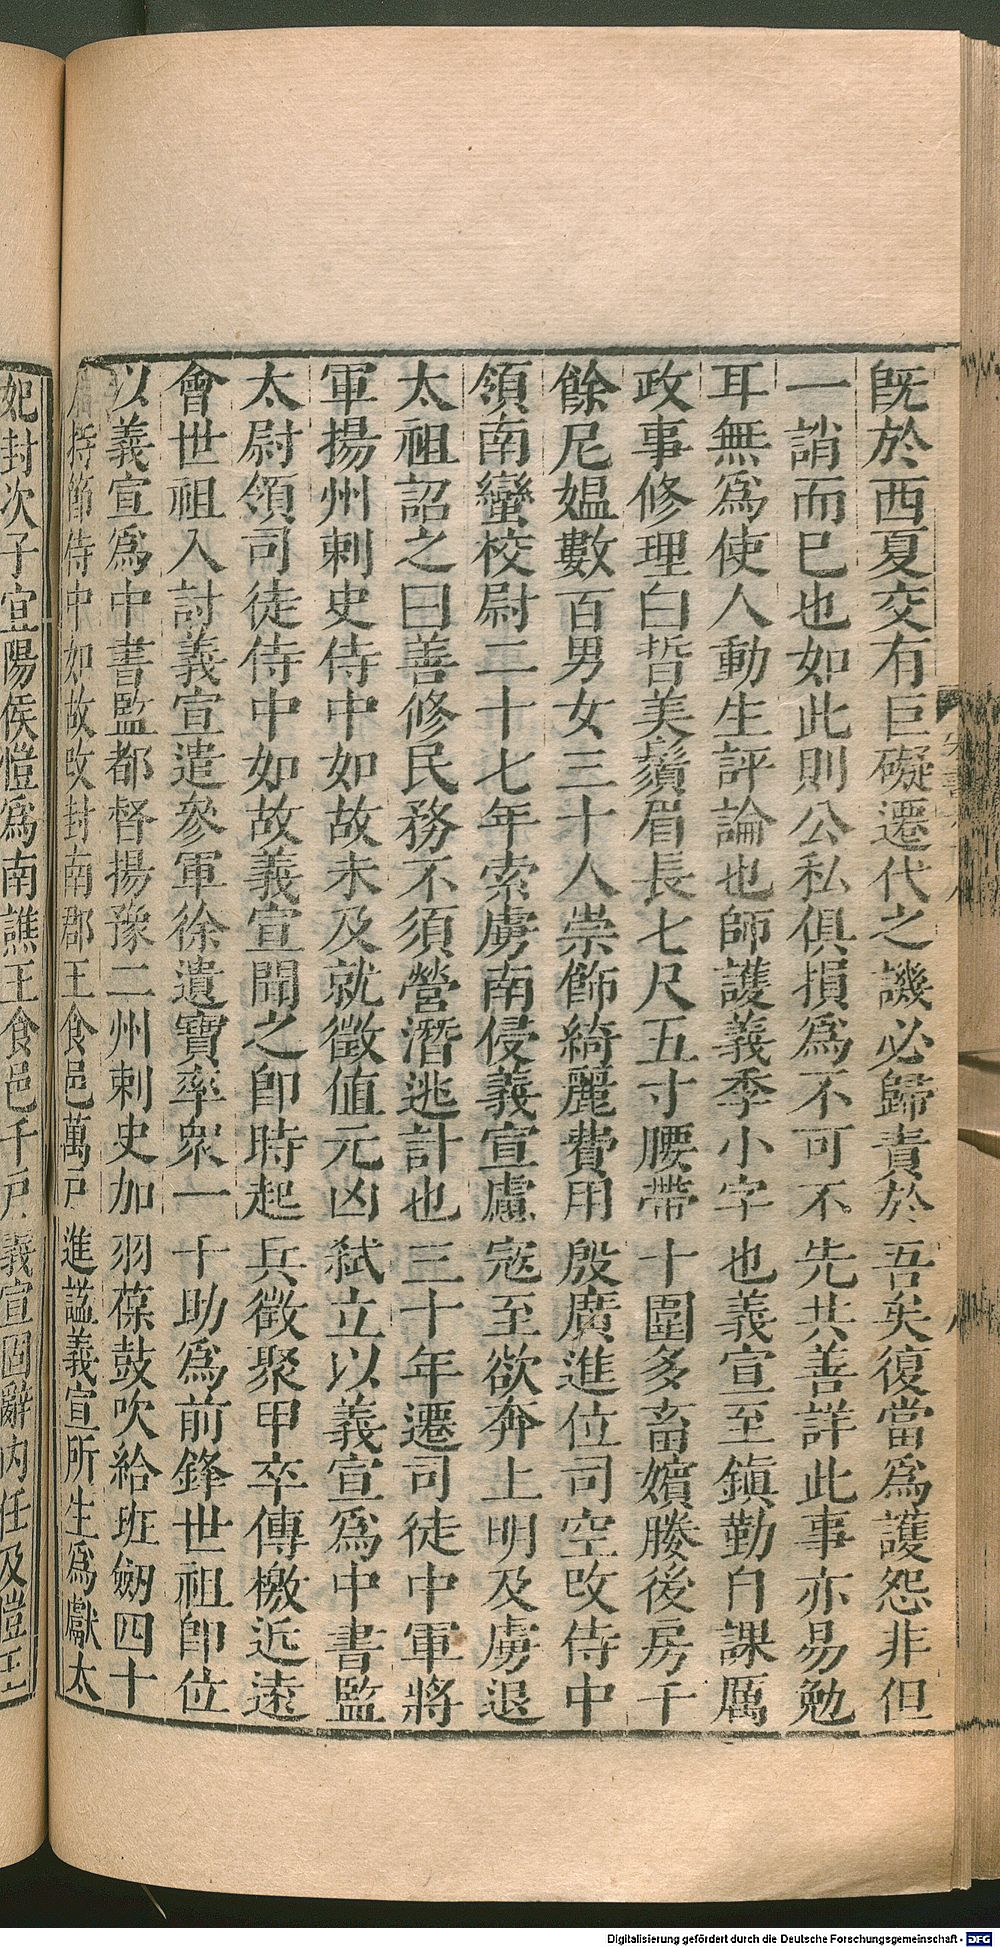 旣於西夏交有巨礙遷代之譏必歸責於吾矣復當爲護怨非但
一誚而已也如此則公私俱損爲不可不先共善詳此事亦易勉
耳無爲使人動生評論也師護義季小字也義宣至鎮勤自課厲
政事修理白晳美鬚眉長七尺五寸腰帶十圍多畜嬪媵後房千
餘尼媪數百男女三十人崇飾綺麗費用殷廣進位司空改侍中
領南蠻校尉二十七年索虜南侵義宣慮寇至欲奔上明及虜退
太祖詔之曰善修民務不須營潛逃計也三十年遷司徒中軍將
軍揚州刺史侍中如故未及就徵值元凶弑立以義宣爲中書監
太尉領司徒侍中如故義宣聞之卽時起兵徵聚甲卒傳檄近遠
會世祖入討義宣遣參軍徐遺寶率衆一千助爲前鋒世祖卽位
以義宣爲中書監都督揚豫二州刺史加羽葆鼓吹給班劒四十
持節侍中如故改封南郡王食邑萬戶進諡義宣所生爲獻太
妃封次子宜陽侯愷爲南譙王食邑千戶義宣固辭內任及愷王
Digitalisierung gefördert durch die Deutsche Forschungsgemeinschaft - DFG